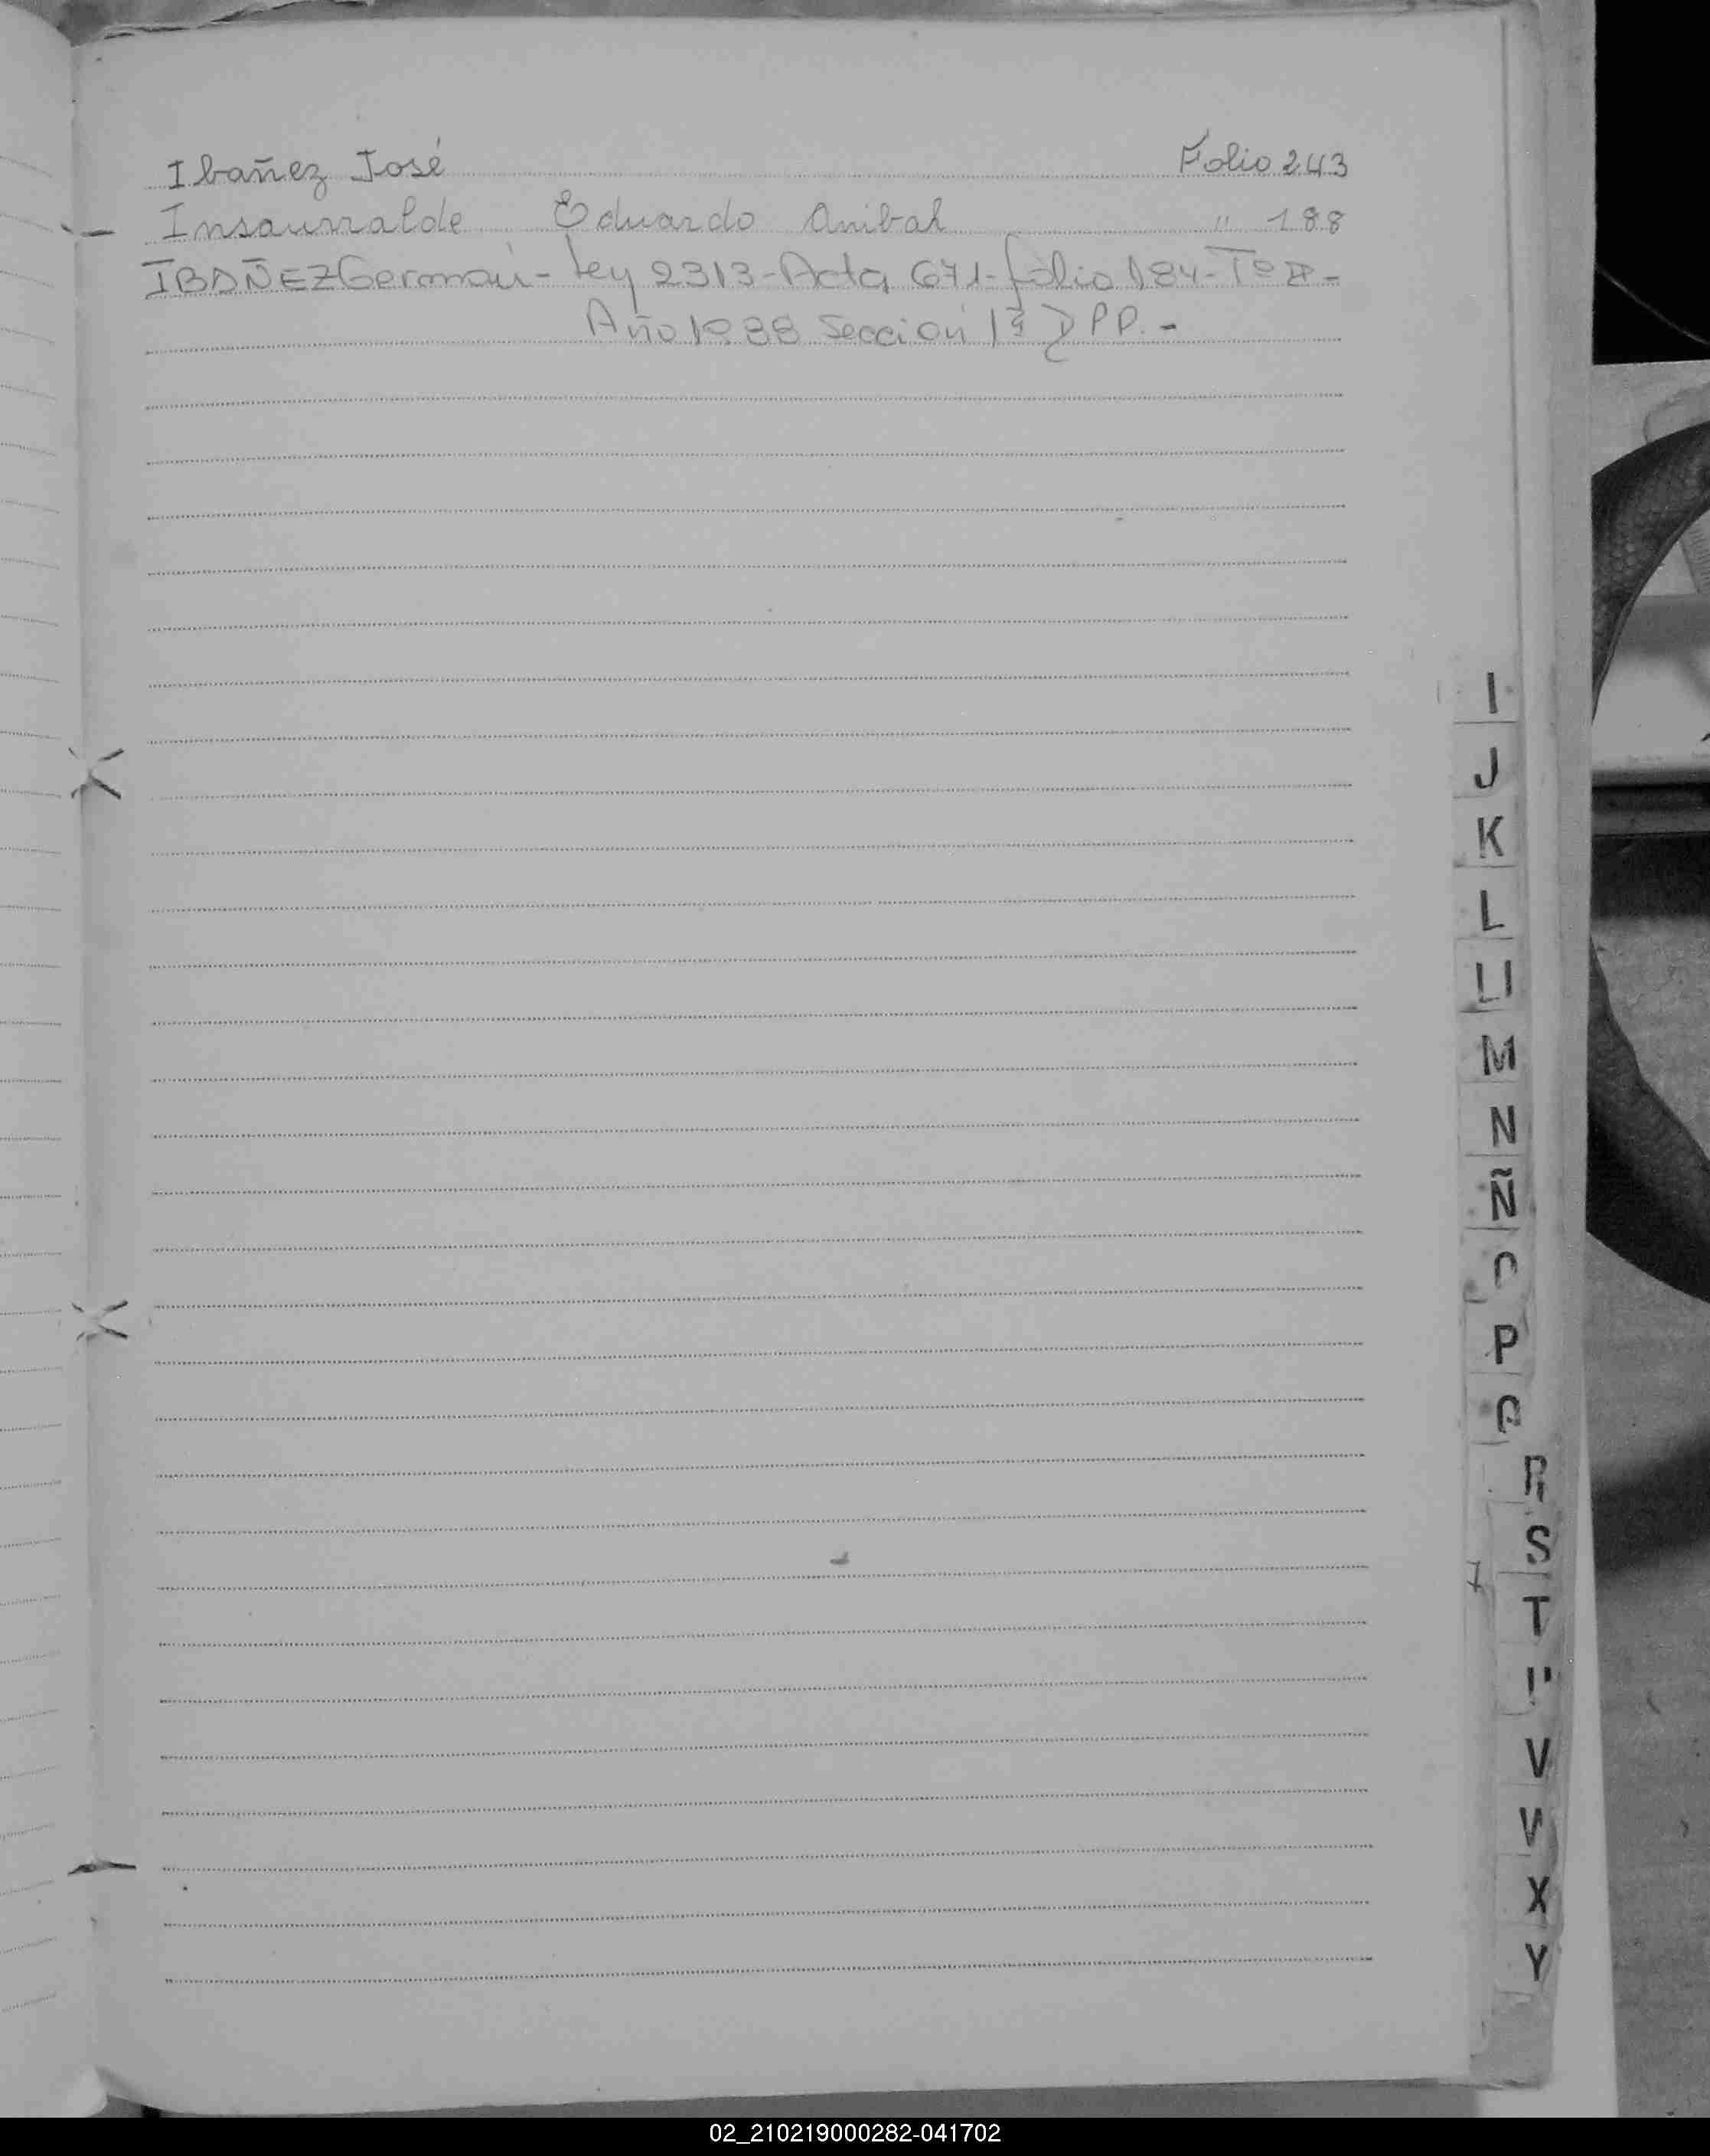 Ibañez José Folio 243
Insaurralde Eduardo Anibal " 188
IBAÑEZ German - Ley 2313 - Acta 671 - folio 184 - Tº II -
Año 1988 Sección 1ª D P P. -
I
J
K
L
Ll
M
N
Ñ
O
P
Q
R
S
T
U
V
W
X
Y
02_210219000282-041702